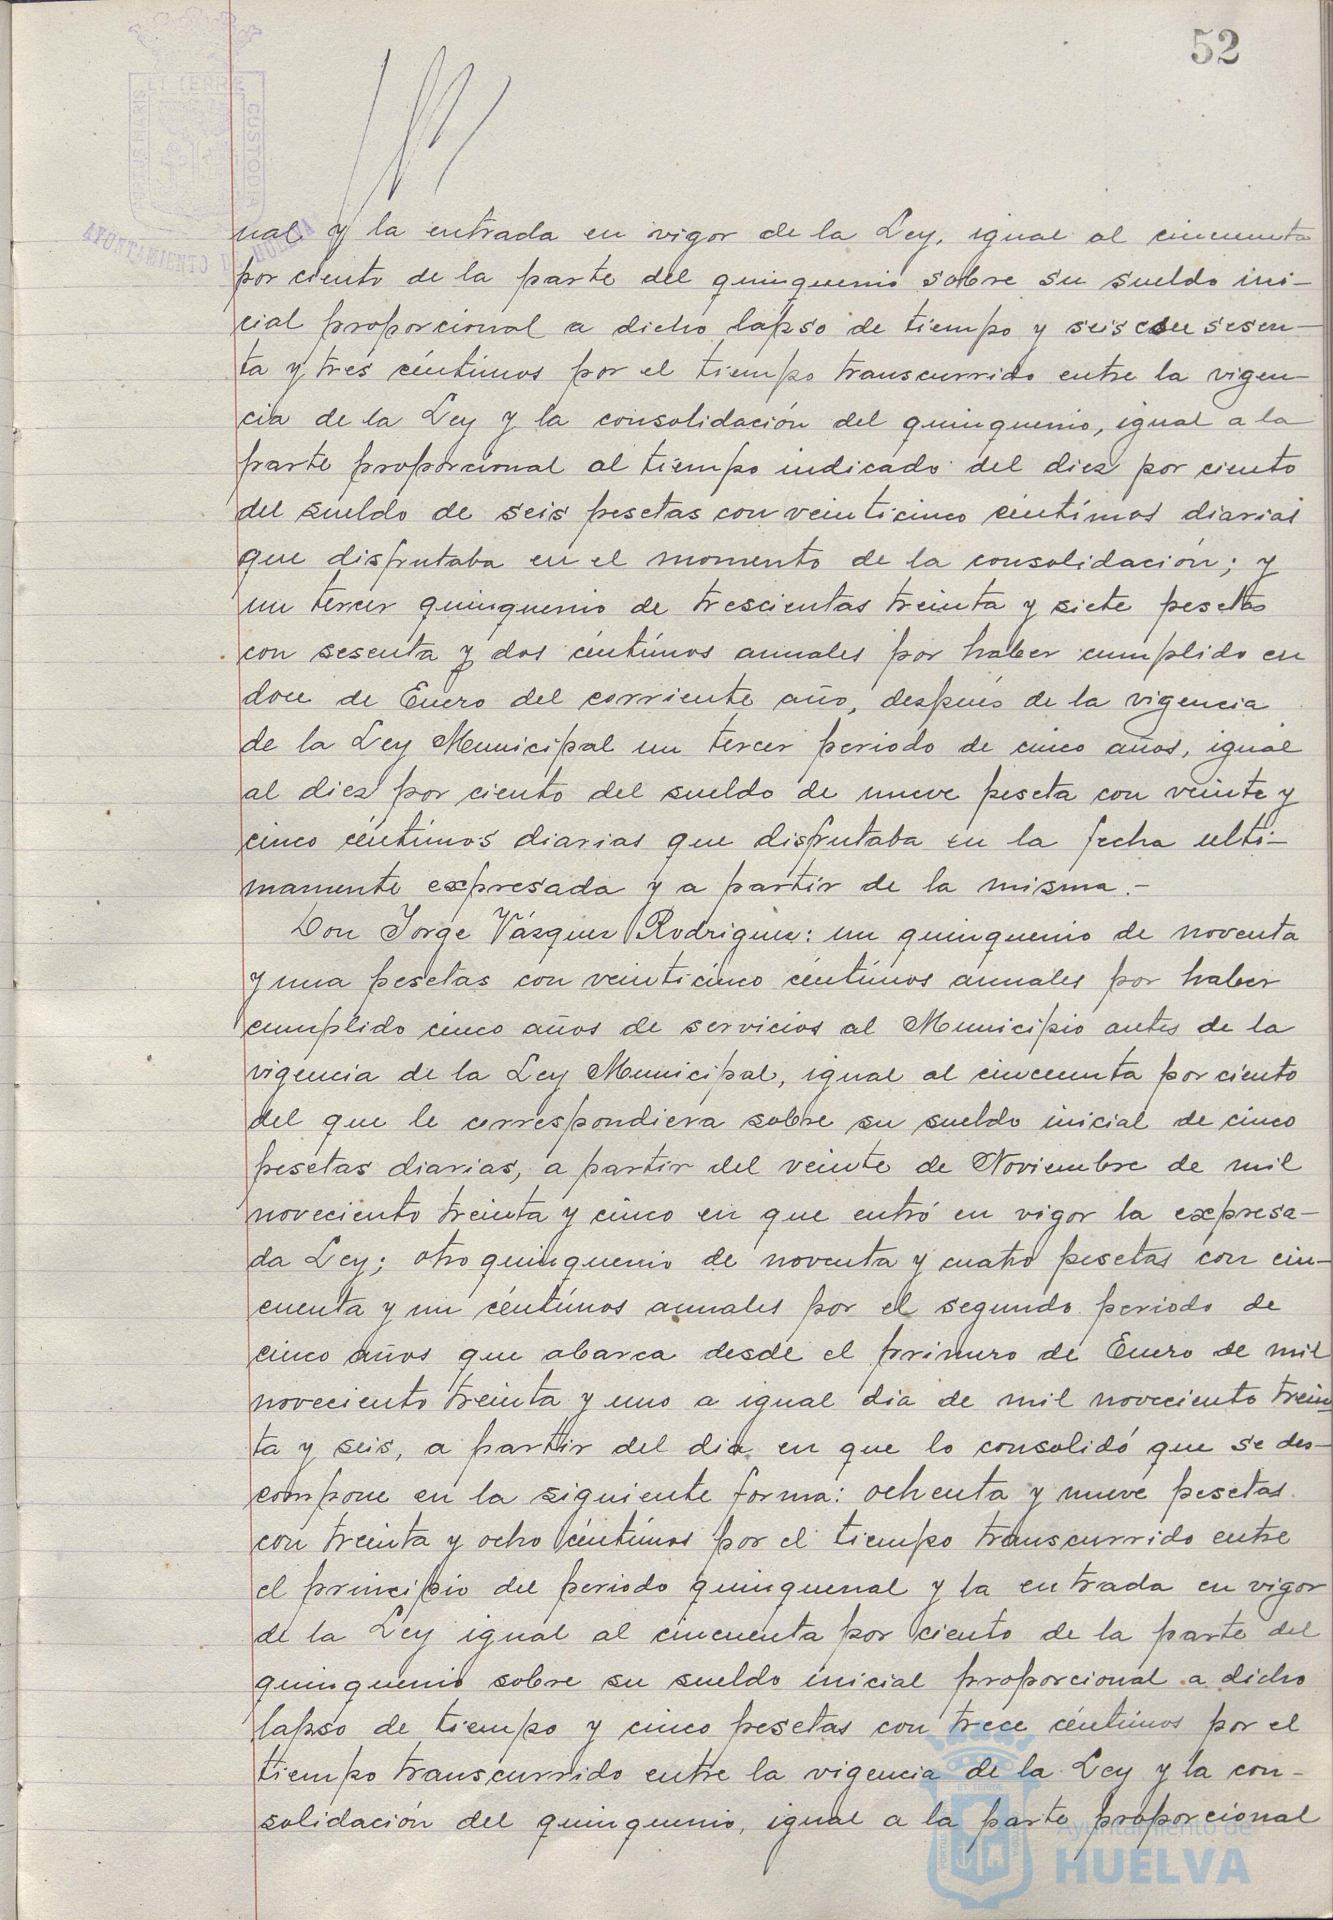 52
PORTUS MARIS
ET TERRÆ
CUSTODIA
AYUNTAMIENTO DE HUELVA
nal y la entrada en vigor de la Ley, igual al cincuenta
por ciento de la parte del quinquenio sobre su sueldo ini-
cial proporcional a dicho lapso de tiempo y seis con sesen-
ta y tres céntimos por el tiempo transcurrido entre la vigen-
cia de la Ley y la consolidación del quinquenio, igual a la
parte proporcional al tiempo indicado del diez por ciento
del sueldo de seis pesetas con veinticinco céntimos diarias
que disfrutaba en el momento de la consolidación; y
un tercer quinquenio de trescientas treinta y siete pesetas
con sesenta y dos céntimos anuales por haber cumplido en
doce de Enero del corriente año, después de la vigencia
de la Ley Municipal un tercer periodo de cinco años, igual
al diez por ciento del sueldo de nueve peseta con veinte y
cinco céntimos diarias que disfrutaba en la fecha ulti-
mamente expresada y a partir de la misma.-
Don Jorge Vázquez Rodriguez: un quinquenio de noventa
y una pesetas con veinticinco céntimos anuales por haber
cumplido cinco años de servicios al Municipio antes de la
vigencia de la Ley Municipal, igual al cincuenta por ciento
del que le correspondiera sobre su sueldo inicial de cinco
pesetas diarias, a partir del veinte de Noviembre de mil
noveciento treinta y cinco en que entró en vigor la expresa-
da Ley; otro quinquenio de noventa y cuatro pesetas con cin-
cuenta y un céntimos anuales por el segundo periodo de
cinco años que abarca desde el primero de Enero de mil
noveciento treinta y uno a igual dia de mil noveciento trein-
ta y seis, a partir del dia en que lo consolidó que se des-
compone en la siguiente forma: ochenta y nueve pesetas
con treinta y ocho céntimos por el tiempo transcurrido entre
el principio del periodo quinquenal y la entrada en vigor
de la Ley igual al cincuenta por ciento de la parte del
quinquenio sobre su sueldo inicial proporcional a dicho
lapso de tiempo y cinco pesetas con trece céntimos por el
tiempo transcurrido entre la vigencia de la Ley y la con-
solidación del quinquenio, igual a la parte proporcional
Ayuntamiento de
HUELVA